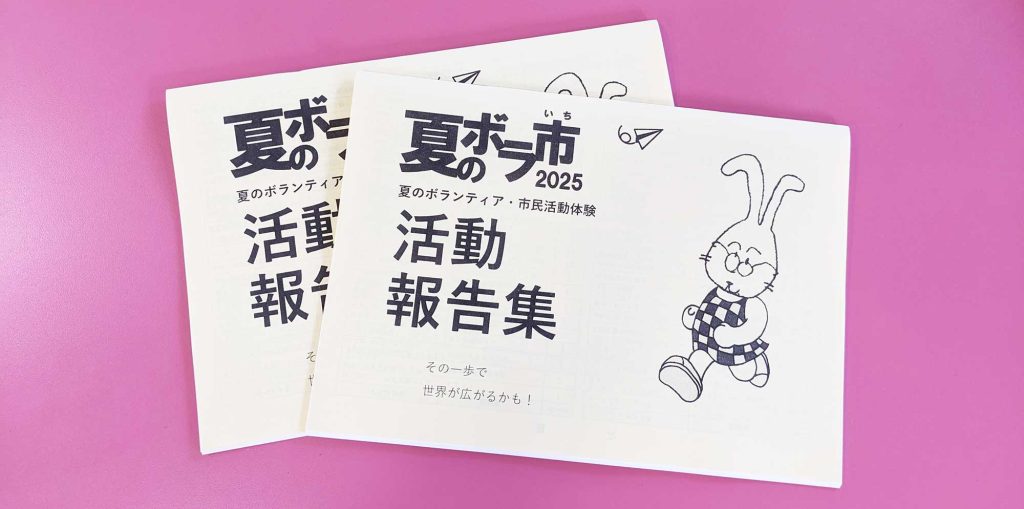 夏のボ
夏のボランティア
活動
報告
その
世
いち
夏のボラ市
2025
夏のボランティア・市民活動体験
活動
報告集
その一歩で
世界が広がるかも！